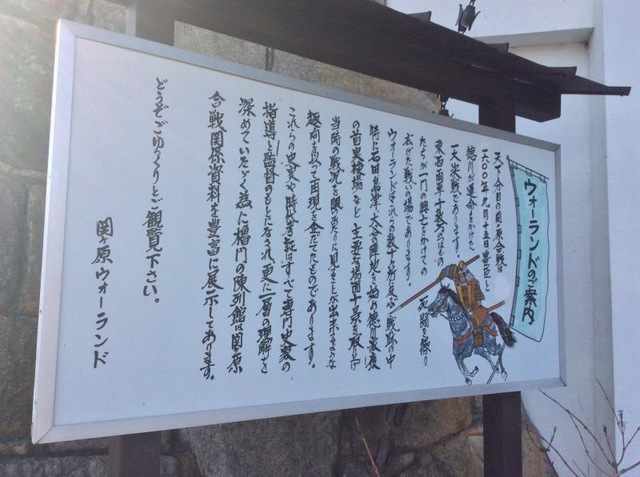 ウォーランドのご案内
天下分目の関ヶ原合戦は
一六〇〇年九月十五日豊臣と
徳川が運命をかけた
一大決戦であります。
東西両軍十数万のつわもの
たちが一門の興亡をかけての死闘を繰り
広げた戦いの場でありま
ウォーランドはこれらの数十ヶ所に及ぶ戦跡の中
特に石田、島津、大谷の陣地を始め徳川最後
の首実検場など主要な場面十景を取り上げ
当時の戦況を目のあたりに見ることが出来るような
趣向を以って再現を企だてたものであります。
これらの史実や時代考証はすべて専門史家の
指導と監督のもとになされ、更に一層の理解を
深めていただく為に櫓門の陳列館は関ヶ原
合戦関係資料を豊富に展示してあります。
どうぞごゆっくりとご観覧下さい。
関ヶ原ウォーランド